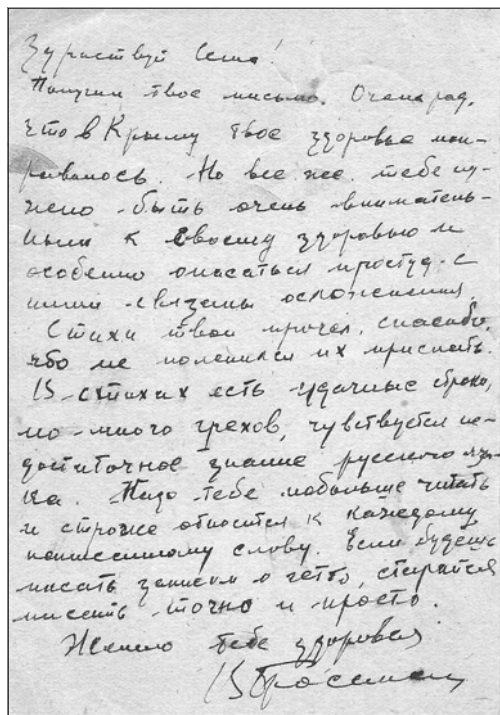 Здравствуй Сеша!
Получил твое письмо. Очень рад,
что в Крыму твое здоровье поп-
равилось. Но все же тебе ну-
жно быть очень вниматель-
ным к своему здоровью и
особенно опасаться простуд – с
ними связаны осложнения.
Стихи твои прочел, спасибо,
что не поленился их прислать.
В стихах есть удачные строки,
но много грехов, чувствуется не-
достаточное знание русского язы-
ка. Надо тебе побольше читать
и строже относится к каждому
написанному слову. Если будешь
писать записки о гетто, старайся
писать точно и просто.
Желаю тебе здоровья
В Гроссман